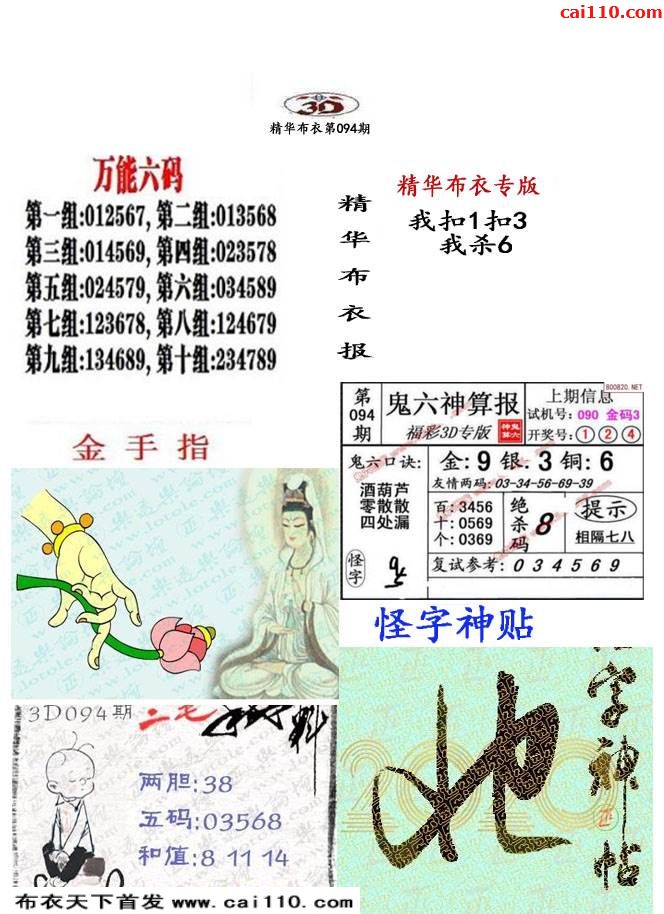 cai110.com
3D
精华布衣第094期
万能六码
第一组:012567,第二组:013568
第三组:014569,第四组:023578
第五组:024579,第六组:034589
第七组:123678,第八组:124679
第九组:134689,第十组:234789
精华布衣报
精华布衣专版
我扣1扣3
我杀6
金手指
BOO820.NET
第094期
鬼六神算报
福彩3D专版
神鬼算六
上期信息
试机号: 090 金码3
开奖号: 1 2 4
鬼六口诀:
酒葫芦
零散散
四处漏
怪字
金: 9 银: 3 铜: 6
友情两码: 03-34-56-69-39
百: 3456
十: 0569
个: 0369
绝杀码
8
提示
相隔七八
复试参考: 0 3 4 5 6 9
怪字神贴
怪字神帖
3D094期
两胆:38
五码:03568
和值:8 11 14
布衣天下首发 www.cai110.com